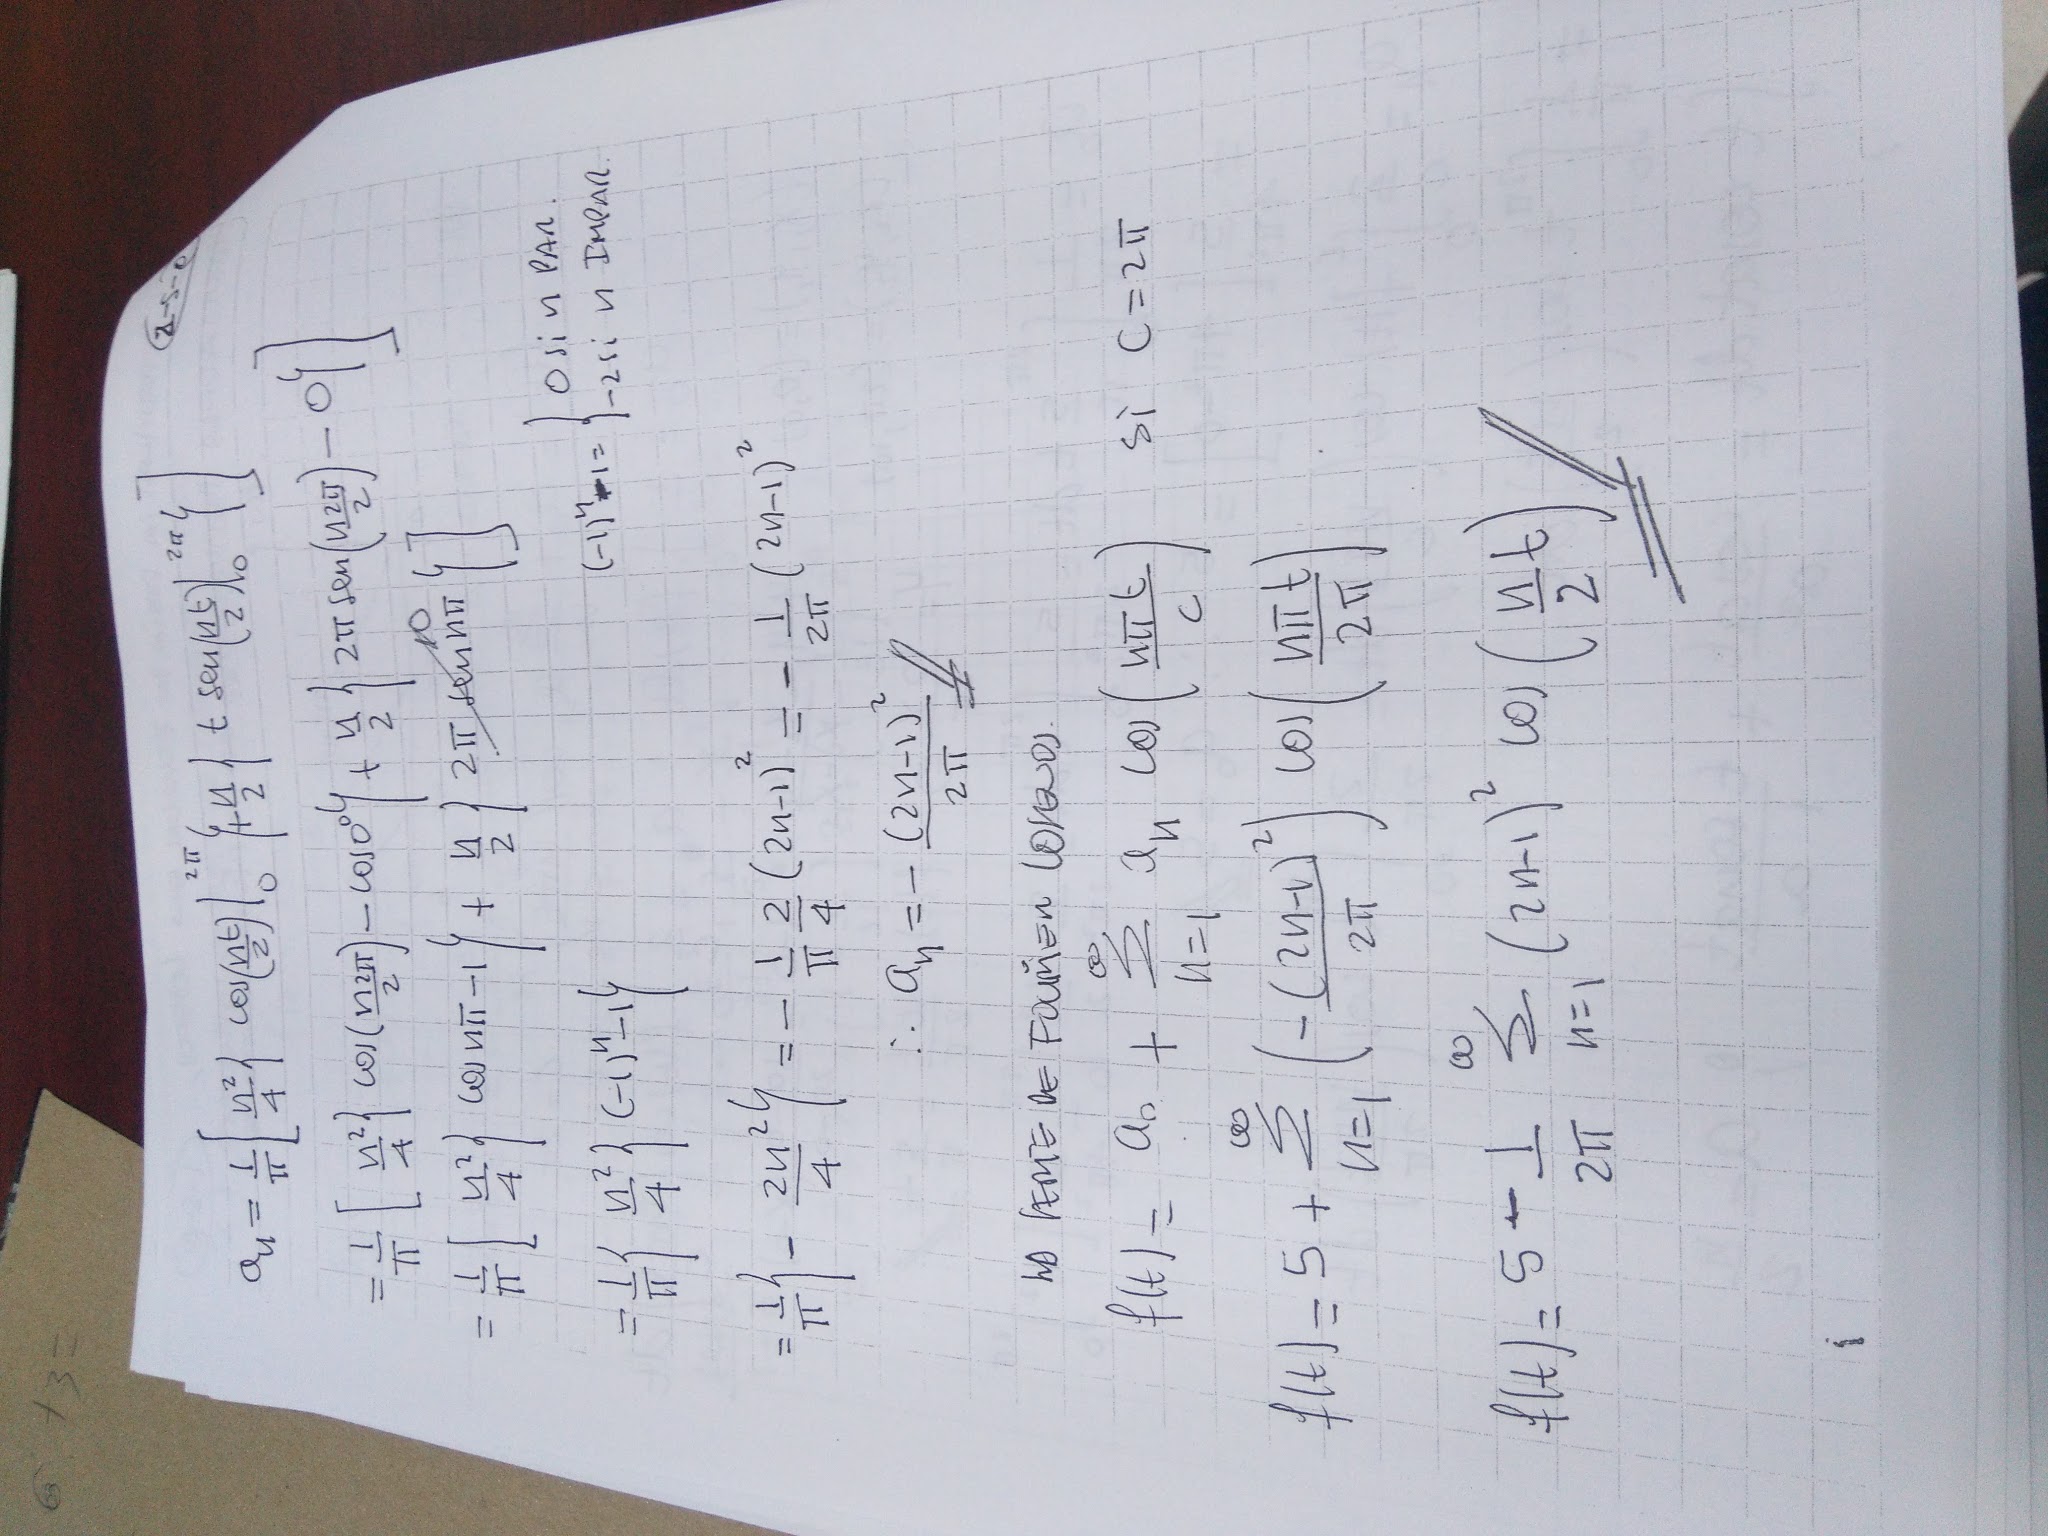 6 +3=
a_n = 1/π [ n²/4 { cos(nt/2) |_0^2π } + n/2 { t sen(nt/2) |_0^2π } ]
= 1/π [ n²/4 { cos(n2π/2) - cos0° } + n/2 { 2π sen(n2π/2) - 0 } ]
= 1/π [ n²/4 { cos nπ - 1 } + n/2 { 2π sen nπ } ] 0
= 1/π { n²/4 } (-1)^n - 1 }
(-1)^n - 1 = { 0 si n PAR.
-2 si n IMPAR.
= 1/π { - 2n²/4 } = - 1/π 2/4 (2n-1)² = - 1/2π (2n-1)²
∴ a_n = - (2n-1)²/2π
SERIE DE FOURIER COSENOS.
f(t) = a_0 + Σ_{n=1}^∞ a_n cos(nπt/c) si c = 2π
f(t) = 5 + Σ_{n=1}^∞ (-(2n-1)²/2π) cos(nπt/2π)
f(t) = 5 - 1/2π Σ_{n=1}^∞ (2n-1)² cos(n/2 t)
i